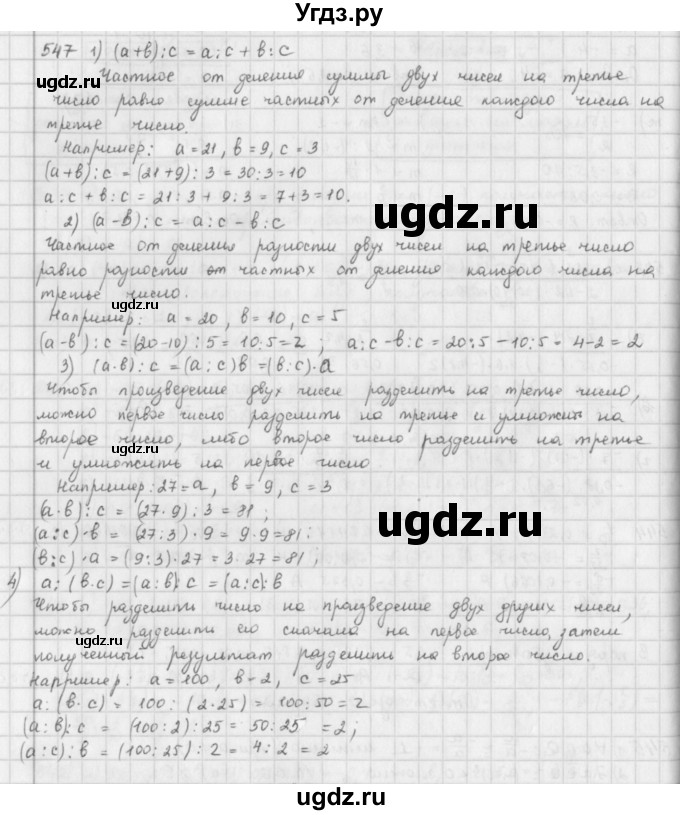 Угдз.ру
547 1) (a+b):c = a:c + b:c
Частное от деления суммы двух чисел на третье
число равно сумме частных от деления каждого числа на
третье число.
Например: a=21, b=9, c=3
(a+b):c = (21+9):3=30:3=10
a:c + b:c = 21:3 + 9:3=7+3=10.
ugdz.ru
2) (a-b):c = a:c - b:c
Частное от деления разности двух чисел на третье число
равно разности от частных от деления каждого числа на
третье число.
ugdz.ru
ugdz.ru
Например: a=20, b=10, c=5
(a-b):c=(20-10):5=10:5=2; a:c-b:c=20:5-10:5=4-2=2
3) (a·b):c=(a:c)b=(b:c)·a
ugdz.ru
Чтобы произведение двух чисел разделить на третье число,
можно первое число разделить на третье и умножить на
второе число, либо второе число разделить на третье
и умножить на первое число.
Например: 27=a, b=9, c=3
(a·b):c = (27·9):3=81;
(a:c)·b = (27:3)·9=9·9=81:
ugdz.ru
(b:c)·a = (9:3)·27=3·27=81;
4) a:(b·c)=(a:b):c=(a:c):b
ugdz.ru
Чтобы разделить число на произведение двух других чисел,
можно разделить его сначала на первое число, затем
полученный результат разделить на второе число.
ugdz.ru
Например: a=100, b-2, c=25
a:(b·c) = 100:(2·25)=100:50=2
(a:b):c = (100:2):25=50:25=2;
(a:c):b = (100:25):2=4:2=2
ugdz.ru
ugdz.ru